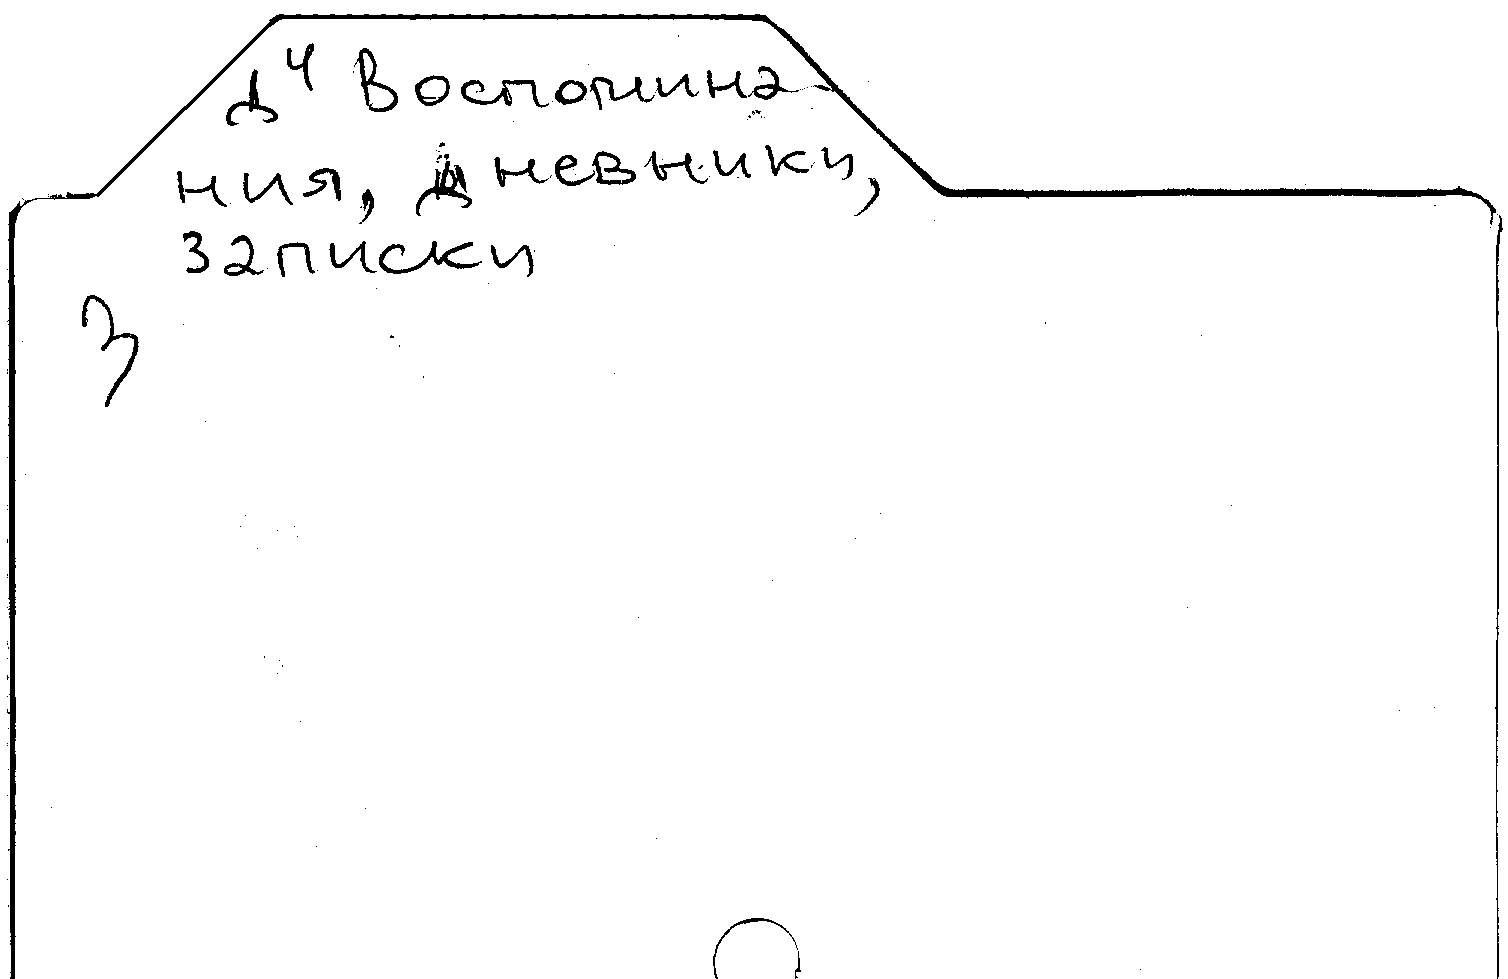 Д⁴ Воспомина-
ния, дневники,
записки
З